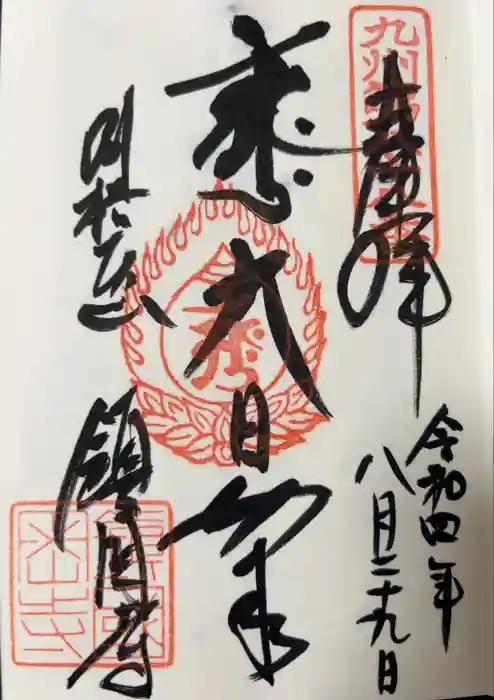 九州
奉拝
令和四年
八月二十九日
大日如来
別格本山
鎮国寺